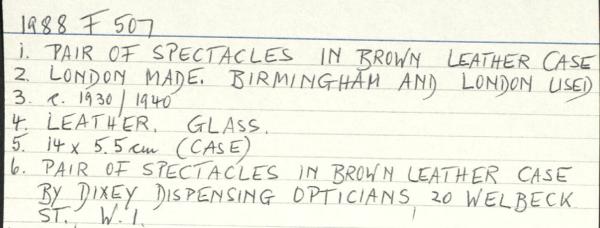 1988 F 507
1. PAIR OF SPECTACLES IN BROWN LEATHER CASE
2. LONDON MADE. BIRMINGHAM AND LONDON USED
3. c. 1930/1940
4. LEATHER. GLASS.
5. 14 x 5.5 cm (CASE)
6. PAIR OF SPECTACLES IN BROWN LEATHER CASE
BY DIXEY DISPENSING OPTICIANS, 20 WELBECK
ST., W.1.